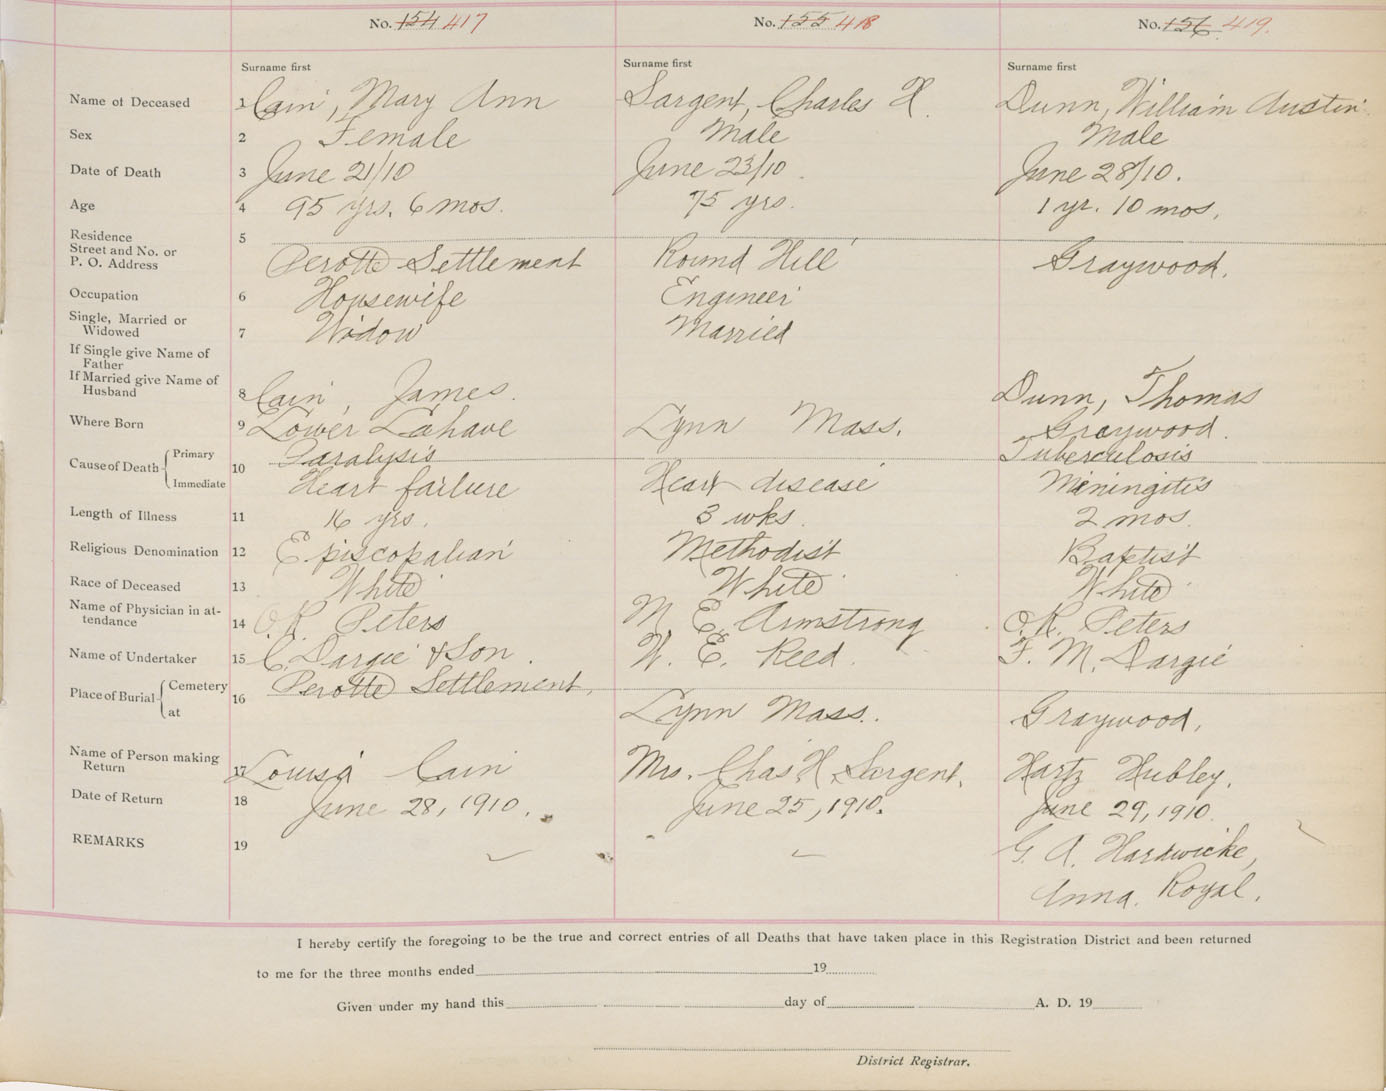 No. 154 417 No. 155 418 No. 156 419.
Surname first Surname first Surname first
Name of Deceased 1 Cain, Mary Ann Sargent, Charles H. Dunn, William Austin
Sex 2 Female Male Male
Date of Death 3 June 21/10 June 23/10. June 28/10.
Age 4 95 yrs. 6 mos. 75 yrs. 1 yr. 10 mos.
Residence
Street and No. or
P. O. Address 5 Perotte Settlement Round Hill Graywood.
Occupation 6 Housewife Engineer
Single, Married or
Widowed 7 Widow Married
If Single give Name of
Father
If Married give Name of
Husband 8 Cain, James. Dunn, Thomas
Where Born 9 Lower Lahave Lynn Mass. Graywood.
Cause of Death Primary 10 Paralysis Tuberculosis
Immediate Heart failure Heart disease Meningitis
Length of Illness 11 16 yrs. 3 wks. 2 mos.
Religious Denomination 12 Episcopalian Methodist Baptist
Race of Deceased 13 White White White
Name of Physician in at-
tendance 14 O. R. Peters M E. Armstrong O. R. Peters
Name of Undertaker 15 C. Dargie & Son. W. E. Reed. F. M. Dargie
Place of Burial Cemetery 16 Perotte Settlement.
at Lynn Mass. Graywood.
Name of Person making
Return 17 Louisa Cain Mrs. Chas. H. Sargent. Hartz Hubley.
Date of Return 18 June 28, 1910. June 25, 1910. June 29, 1910.
REMARKS 19 G. A. Hardwicke,
Anna. Royal.
I hereby certify the foregoing to be the true and correct entries of all Deaths that have taken place in this Registration District and been returned
to me for the three months ended 19
Given under my hand this day of A. D. 19
District Registrar.